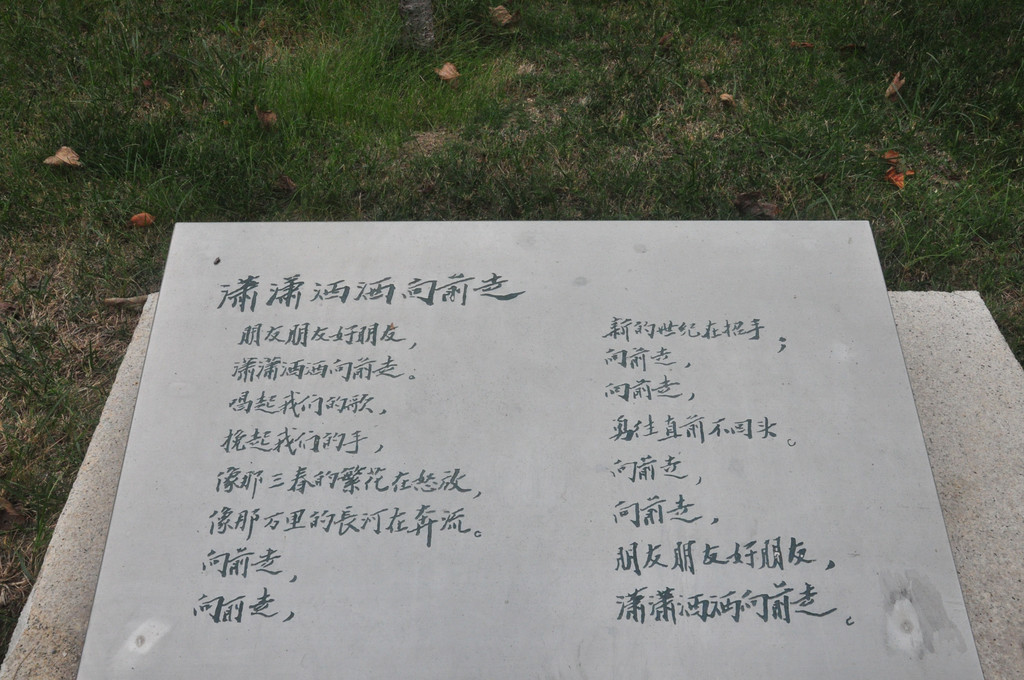 潇潇洒洒向前走
朋友朋友好朋友,
潇潇洒洒向前走。
唱起我们的歌,
挽起我们的手,
像那三春的繁花在怒放,
像那万里的長河在奔流。
向前走,
向前走,
新的世纪在招手;
向前走,
向前走,
勇往直前不回头。
向前走,
向前走,
朋友朋友好朋友,
潇潇洒洒向前走。